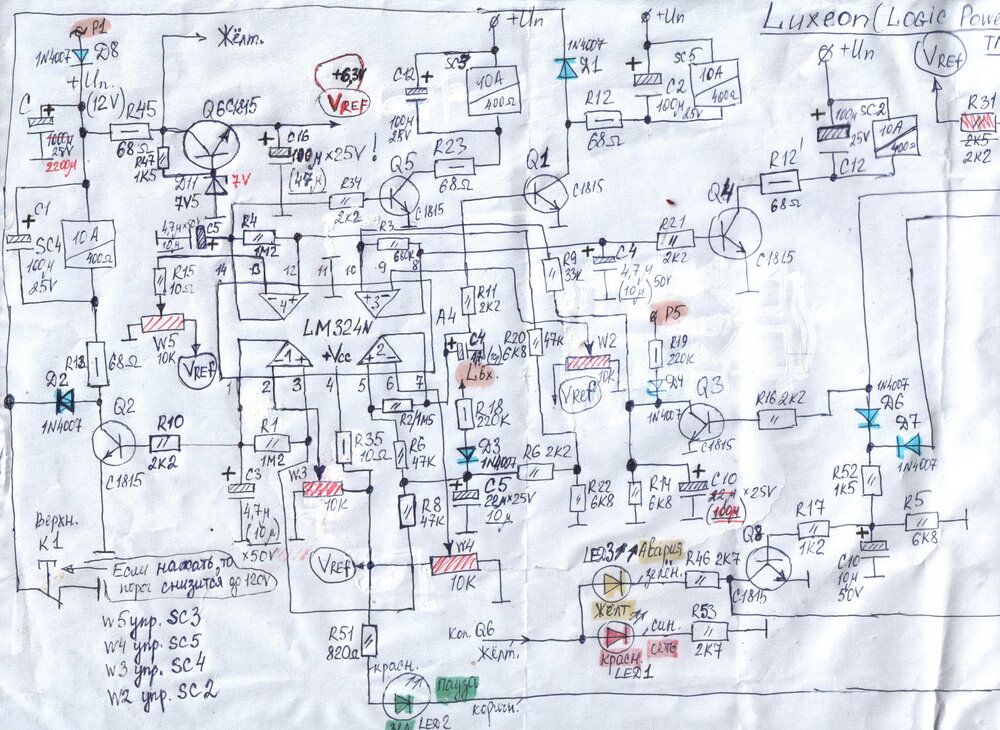 Luxeon (Logic Powe
P1
1N4007
D8
+Uп.
(12V)
C
1000μ
25V
2200μ
R45
68Ω
Жёлт.
Q6 C1815
R47
1K5
D11
7V5
7V
+6,3V
VREF
C16
100μ × 25V !
(47μ)
C12
100μ
25V
+Uп
SC3
10A
400Ω
R23
68Ω
Q5
C1815
R34
2K2
1N4007
D1
+Uп
SC5
10A
400Ω
C2
100μ
25V
R12
68Ω
Q1
C1815
+Uп
100μ
25V
SC2
10A
400Ω
C12
R12'
68Ω
Q4
C1815
VREF
R31
2K5
2K2
C1
SC4
100μ
25V
10A
400Ω
C5
R4
1M2
R3
680K
R15
10Ω
W5
10K
VREF
14
13
12
11
10
9
8
4
3
LM324N
1
+Vcc
2
1
2
3
4
5
6
7
A4
R11
2K2
C4
L6x.
R18
220K
D3
1N4007
C5
22μ×25V
10μ
R20
6K8
47K
R9
33K
C4
4,7μ
(10μ)
50V
R21
2K2
W2
10K
VREF
P5
R19
220K
D4
1N4007
Q3
C1815
R16 2K2
1N4007
D6
D7
1N4007
R52
1K5
R5
6K8
C10
10μ
50V
R17
1K2
Q8
C1815
R13
68Ω
D2
1N4007
Q2
C1815
R10
2K2
R1
1M2
C3
4,7μ
(10μ)
×50V
W3
10K
R35
10Ω
R2 1M5
R6
47K
R8
47K
R6 2K2
R22
6K8
R14
6K8
C10
22μ × 25V
100μ
VREF
W4
10K
Верхн.
K1
Если нажать, то
порог снизится до 120V
W5 упр. SC3
W4 упр. SC5
W3 упр. SC4
W2 упр. SC2
R51
820Ω
красн.
Пауза
коричн.
LED2
Кол. Q6
Жёлт.
LED3
Авария
зелён.
R46 2K7
Жёлт
син.
сеть
R53
2K7
Красн.
LED1